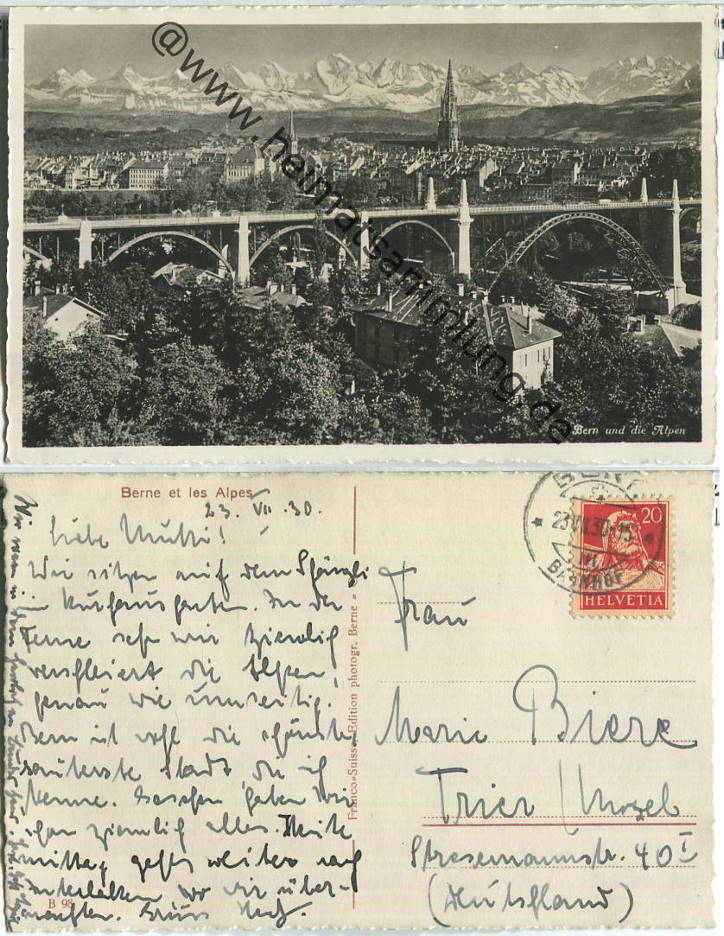 @www.heimatsammlung.de
Bern und die Alpen
Berne et les Alpes
23. VII. 30.
Liebe Mutti!
Wir sitzen auf dem
im Kurhausgarten. In der
Ferne sehn wir ziemlich
verschleiert die Alpen,
genau wie umseitig.
Bern ist wohl die schönste,
sauberste Stadt, die ich
kenne. Gesehen haben wir
schon ziemlich alles. Heute
mittag gehts weiter nach
Interlaken wo wir über-
nachten. Gruss
B 98
Franco-Suisse, Edition photogr. Berne
BERN
23.VII.30-15
VI
BAHNHOF
20
HELVETIA
Frau
Marie Biere
Trier / Mosel
Stresemannstr. 40 I
(Deutschland)